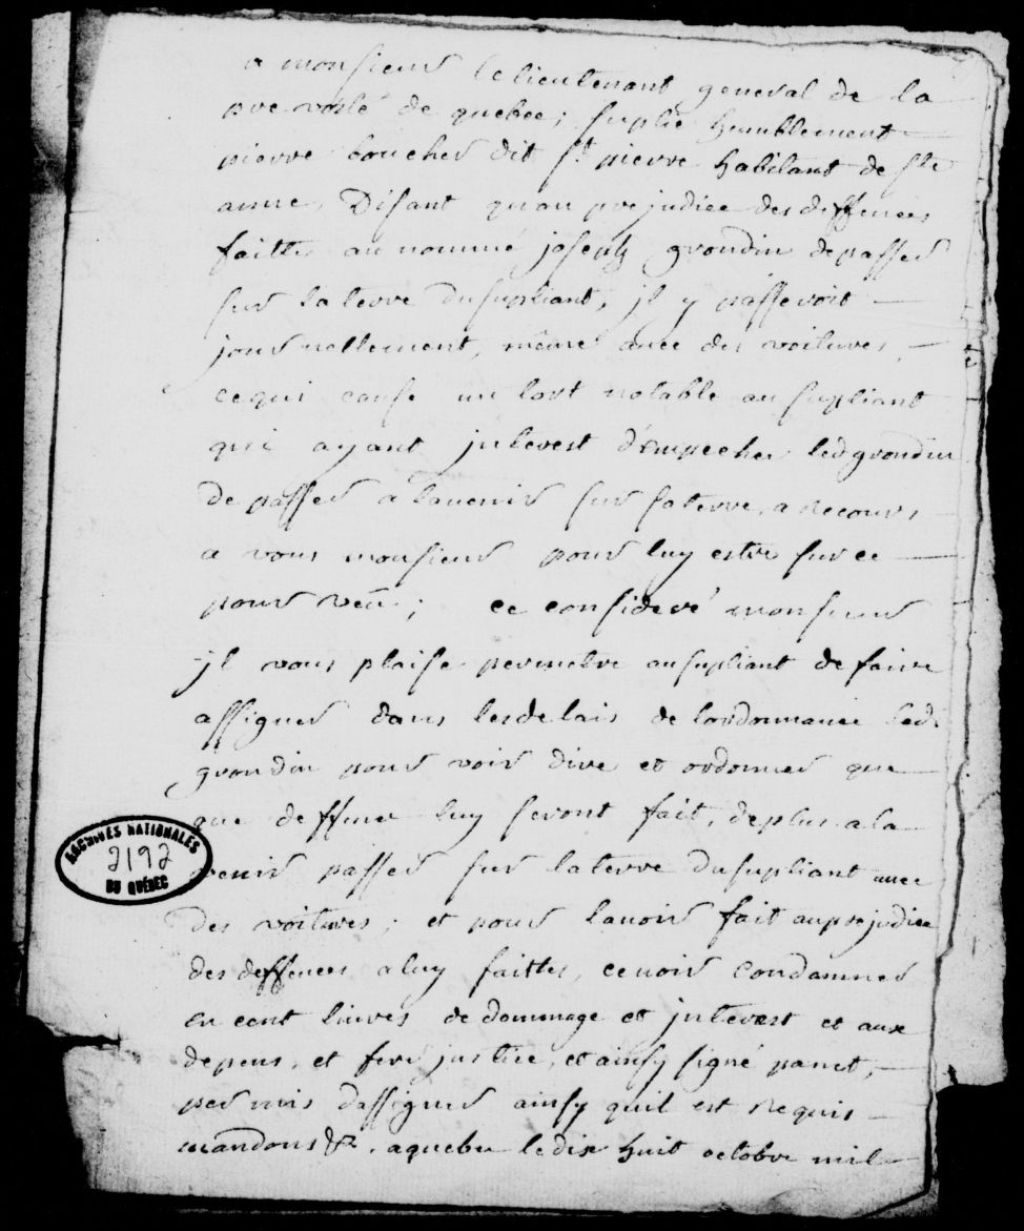 a monsieur le lieutenant general de la
prevosté de quebec; suplie humblement
pierre boucher dit st pierre habitant de ste
anne, Disant quau prejudice des deffences
faittes au nommé joseph grondin de passer
sur la terre du supliant, jl y passeroit
journellement, même avec des voitures,
ce qui cause un tort notable au supliant
qui ayant jnterest d'empecher led grondin
de passer a lauenir sur sa terre, a recours
a vous monsieur pour luy estre sur ce
pourveu; ce consideré monsieur
jl vous plaise permettre au supliant de faire
assigner dans les delais de lordonnance led.
grondin pour voir dire et ordonner que
que deffences luy seront fait, de plus a la
venir passer sur la terre du supliant avec
des voitures; et pour lauoir fait au prejudice
des deffences a luy faittes, ce voir condamner
en cent liures de dommage et jnterest et aux
depens, et feré justice, et ainsy signé panet,
permis dassigner ainsy quil est requis
mandons &c. a quebec le dix huit octobre mil
ARCHIVES NATIONALES
2192
DU QUÉBEC